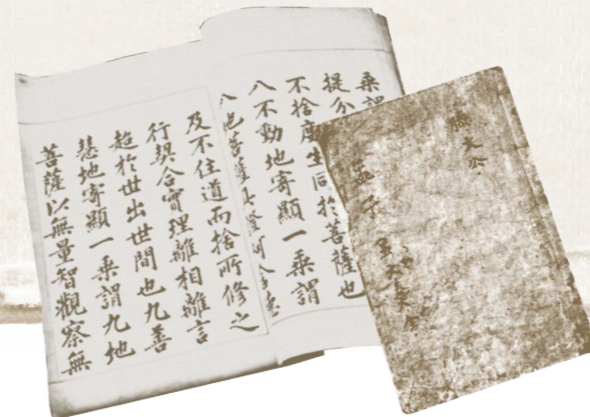 乘謂
提分
不捨衆生同於菩薩也
八不動地寄顯一乘謂
八地菩薩
及不住道而捨所修之
行契合實理離相離言
趨於世出世間也九善
慧地寄顯一乘謂九地
菩薩以無量智觀察無
滕文公
孟子